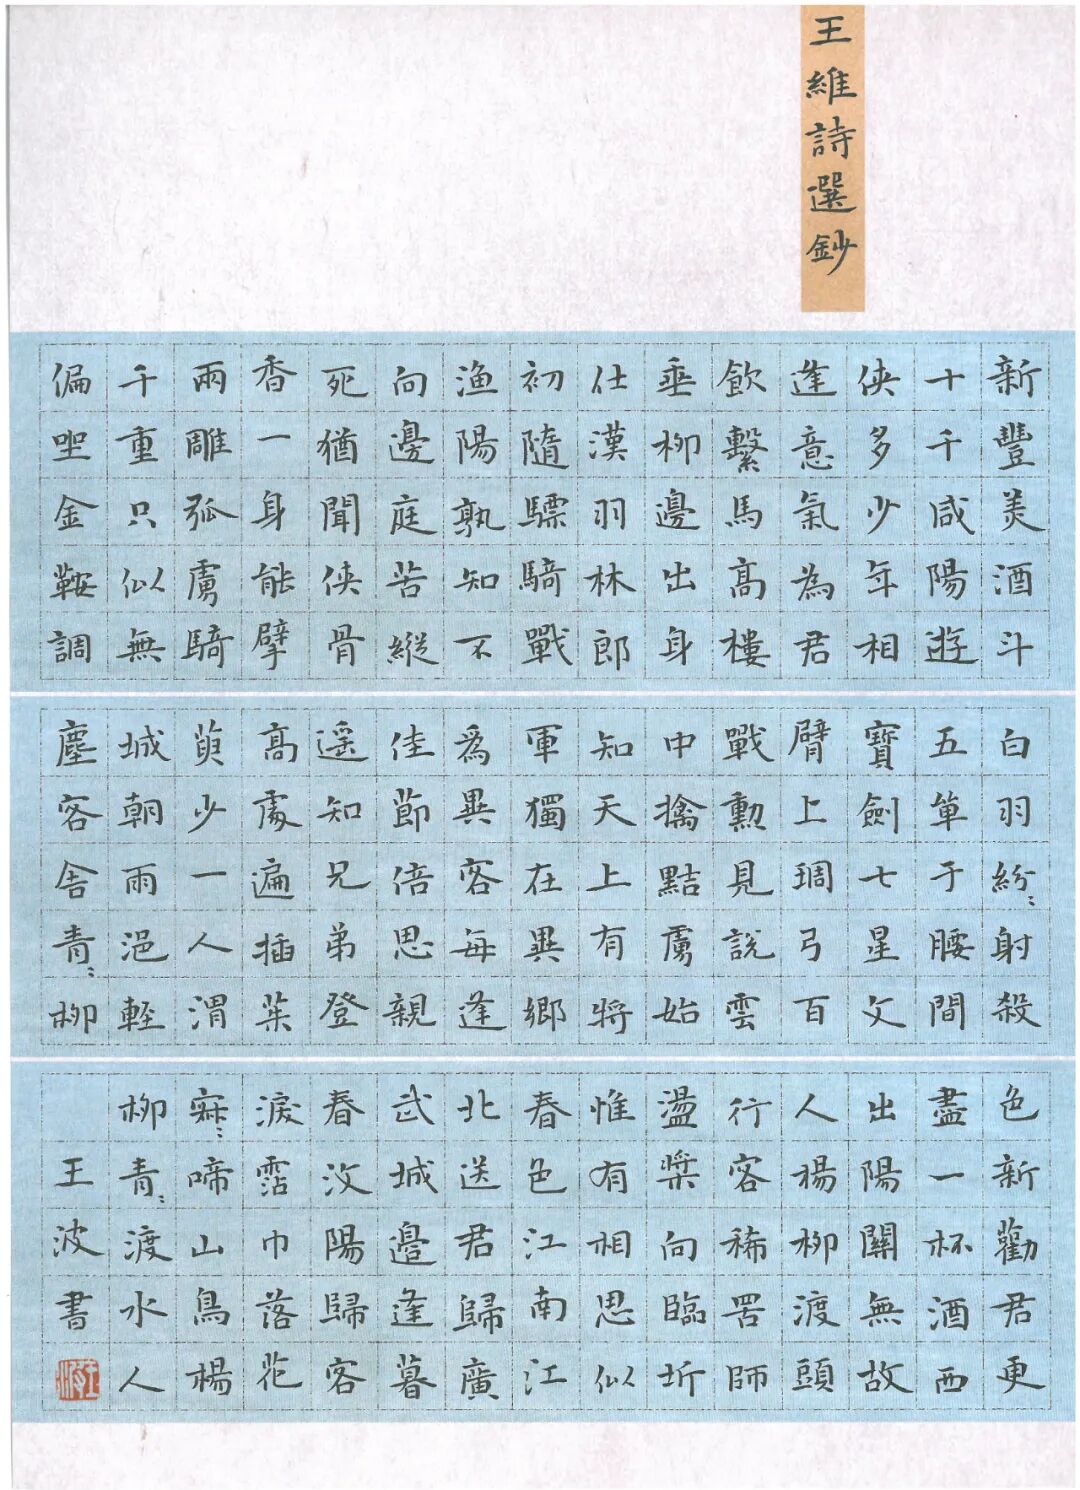 王維詩選鈔
新豐美酒斗
十千咸陽遊
俠多少年相
逢意氣為君
飲繫馬高樓
垂柳邊出身
仕漢羽林郎
初隨驃騎戰
漁陽孰知不
向邊庭苦縱
死猶聞俠骨
香一身能擘
兩雕弧虜騎
千重只似無
偏坐金鞍調
白羽紛〻射殺
五單于腰間
寶劍七星文
臂上琱弓百
戰勳見說雲
中擒黠虜始
知天上有將
軍獨在異鄉
為異客每逢
佳節倍思親
遥知兄弟登
高處遍插茱
萸少一人渭
城朝雨浥輕
塵客舍青〻柳
色新勸君更
盡一杯酒西
出陽關無故
人楊柳渡頭
行客稀罟師
盪槳向臨圻
惟有相思似
春色江南江
北送君歸廣
武城邊逢暮
春汶陽歸客
淚霑巾落花
寂〻啼山鳥楊
柳青〻渡水人
王波書